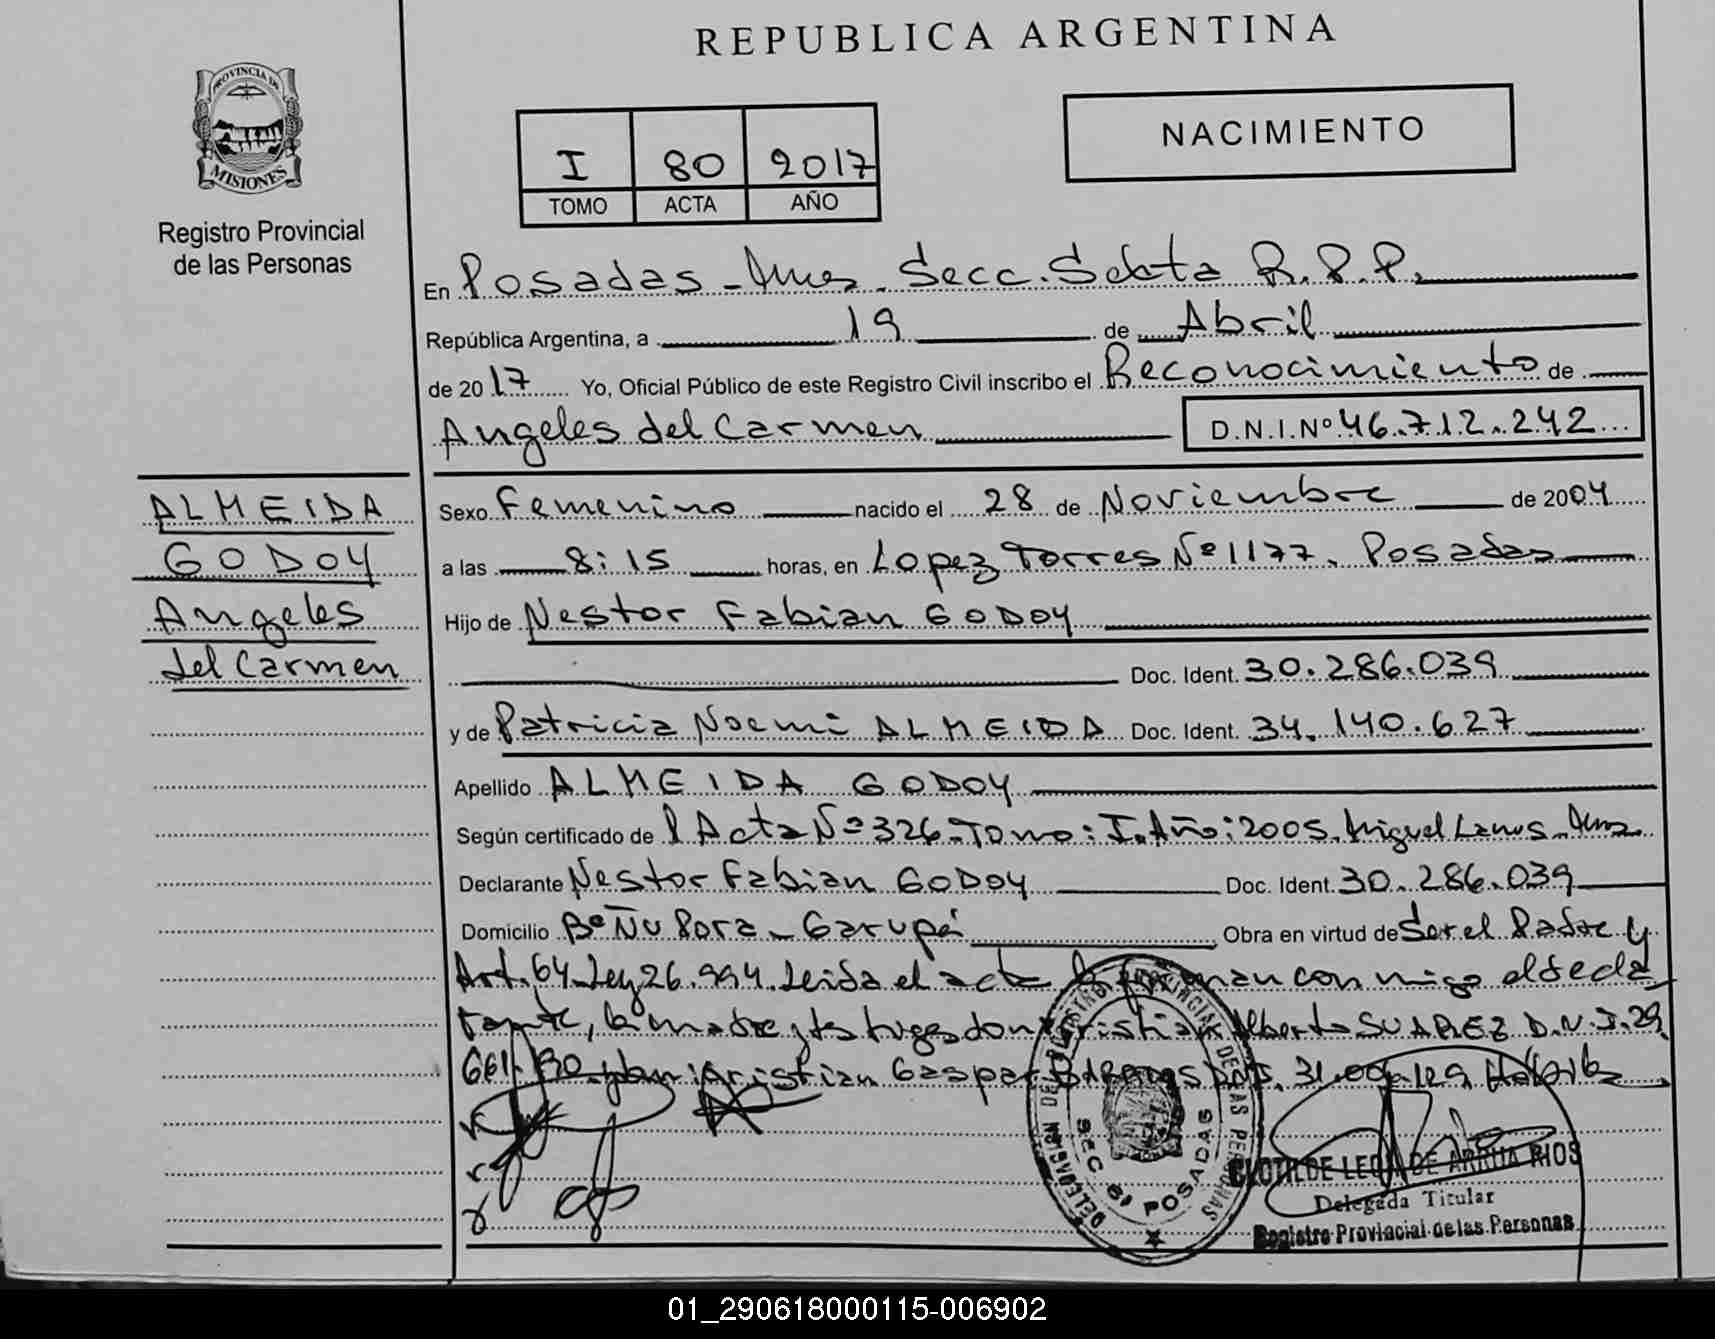 REPUBLICA ARGENTINA
PROVINCIA DE
MISIONES
Registro Provincial
de las Personas
NACIMIENTO
I 80 2017
TOMO ACTA AÑO
En Posadas - Mnes. Secc. Sexta R.P.P.
República Argentina, a 19 de Abril
de 2017 Yo, Oficial Público de este Registro Civil inscribo el Reconocimiento de
Angeles del Carmen D.N.I.Nº 46.712.242
ALMEIDA
GODOY
Angeles
del Carmen
Sexo Femenino nacido el 28 de Noviembre de 2004
a las 8:15 horas, en Lopez Torres Nº 1177. Posadas
Hijo de Nestor Fabian GODOY
Doc. Ident. 30.286.039
y de Patricia Noemi ALMEIDA Doc. Ident. 34.140.627
Apellido ALMEIDA GODOY
Según certificado de l Acta Nº 326. Tomo: I. Año: 2005. Miguel Lanus - Mnes.
Declarante Nestor Fabian GODOY Doc. Ident. 30.286.039
Domicilio Bº Ñu Pora - Garupá Obra en virtud de Ser el Padre y
Art. 64 Ley 26.994. Leida el acta la firman con migo el decla
rante, la madre y testigos don Cristian Alberto SUAREZ D.N.I. 29.
661. Cristian Gaspar D.N.I. 31.
DELEGACION DE REGISTRO PROVINCIAL DE LAS PERSONAS
SEC 6ª POSADAS
CLOTILDE LEDA DE ARRUA RIOS
Delegada Titular
Registro Provincial de las Personas
01_290618000115-006902